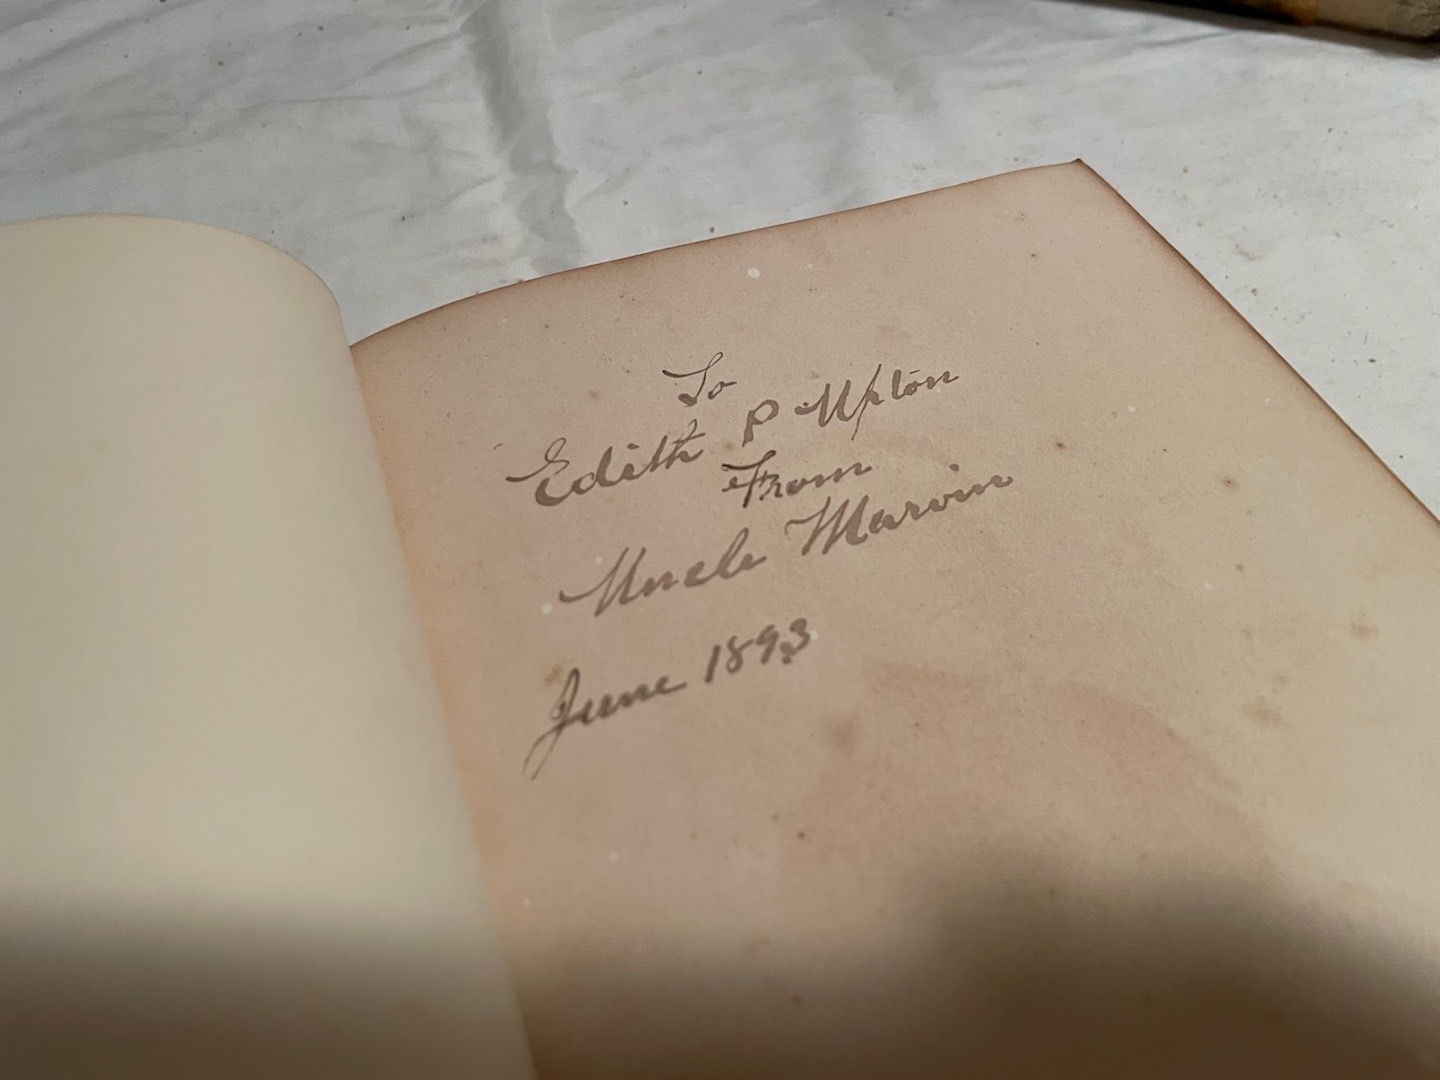 To
Edith P Upton
From
Uncle Marvin
June 1893